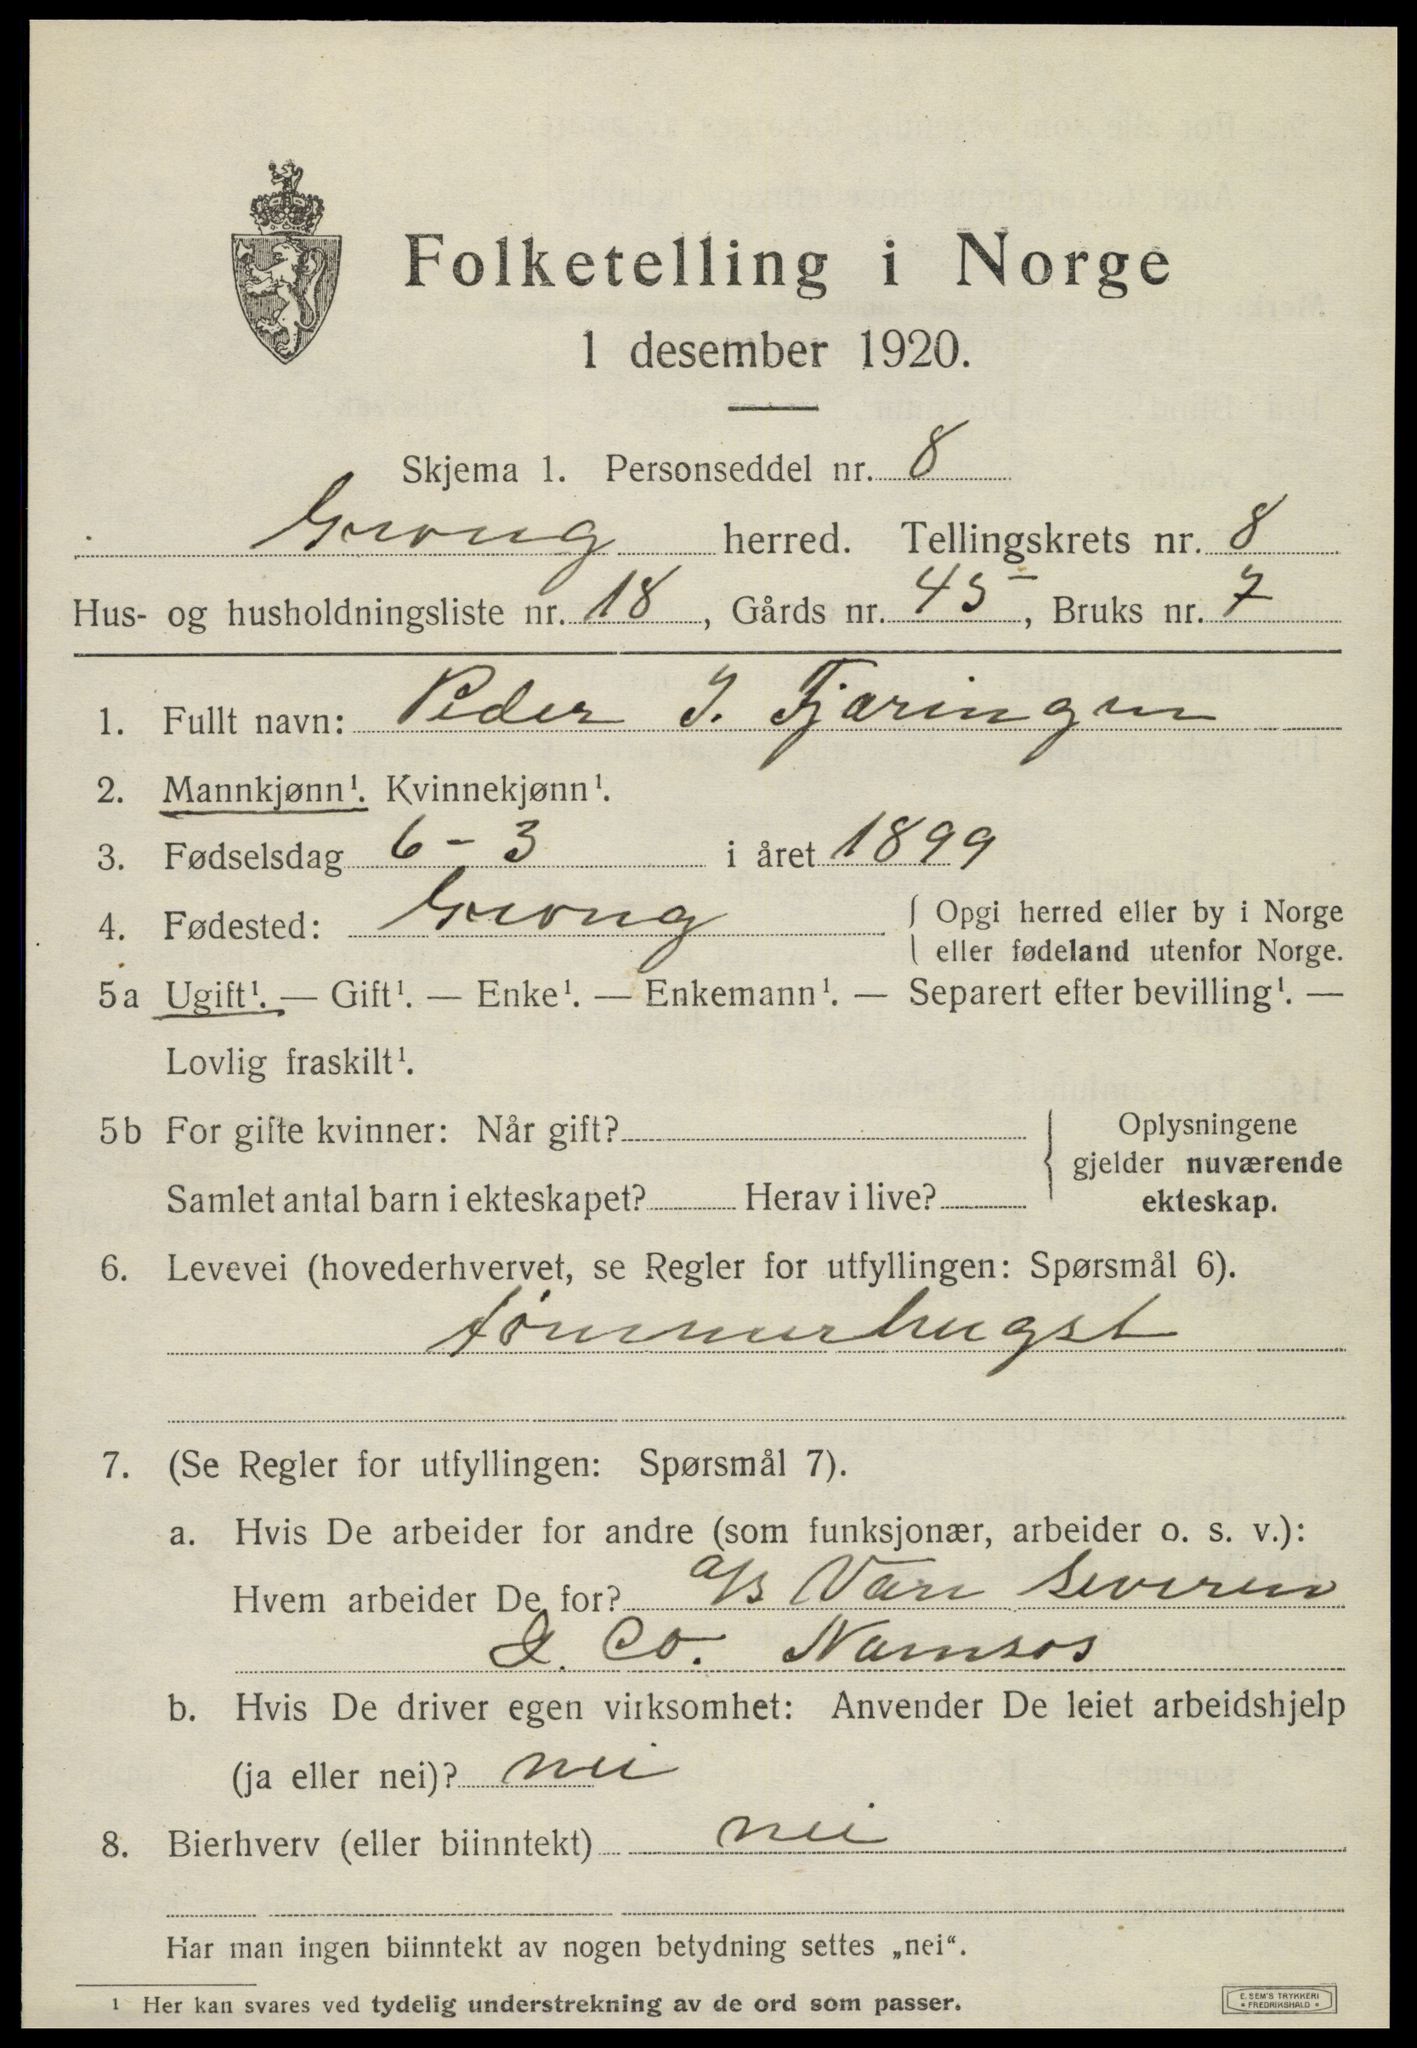 Folketelling i Norge
1 desember 1920.
Skjema 1. Personseddel nr. 8
Grong herred. Tellingskrets nr. 8
Hus- og husholdningsliste nr. 18, Gårds nr. 45, Bruks nr. 7
1. Fullt navn: Peder J. Fjæringen
2. Mannkjønn¹. Kvinnekjønn¹.
3. Fødselsdag 6 – 3 i året 1899
4. Fødested: Grong { Opgi herred eller by i Norge
eller fødeland utenfor Norge.
5a Ugift¹. — Gift¹. — Enke¹. — Enkemann¹. — Separert efter bevilling¹. —
Lovlig fraskilt¹.
5b For gifte kvinner: Når gift? { Oplysningene
gjelder nuværende
Samlet antal barn i ekteskapet? Herav i live? ekteskap.
6. Levevei (hovederhvervet, se Regler for utfyllingen: Spørsmål 6).
tømmerhugst
7. (Se Regler for utfyllingen: Spørsmål 7).
a. Hvis De arbeider for andre (som funksjonær, arbeider o. s. v.):
Hvem arbeider De for? a/s Van Severen
& Co. Namsos
b. Hvis De driver egen virksomhet: Anvender De leiet arbeidshjelp
(ja eller nei)? nei
8. Bierhverv (eller biinntekt) nei
Har man ingen biinntekt av nogen betydning settes „nei“.
¹ Her kan svares ved tydelig understrekning av de ord som passer.
E. SEM'S TRYKKERI
* FREDRIKSHALD *